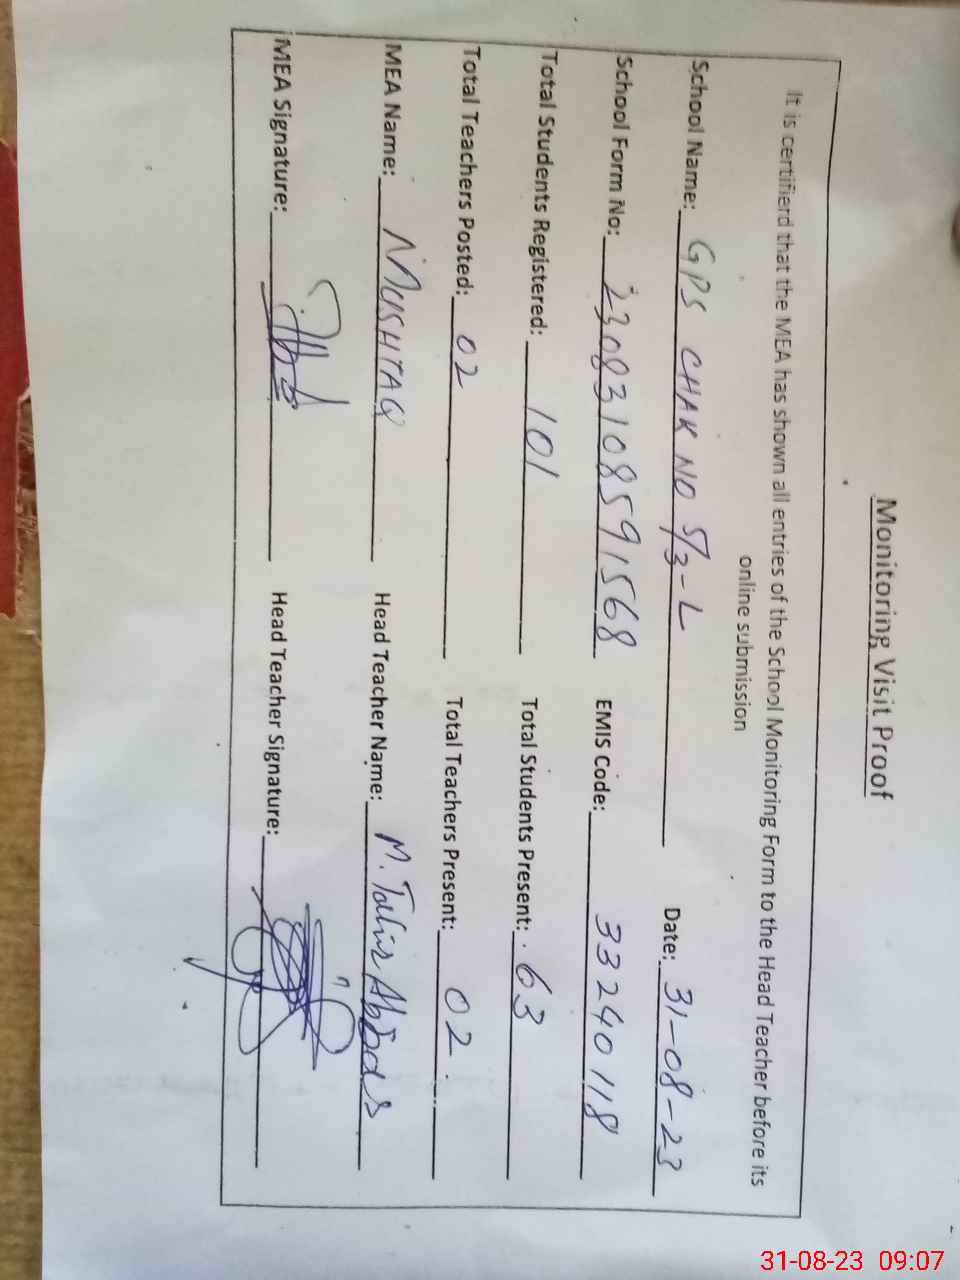 Monitoring Visit Proof
It is certifierd that the MEA has shown all entries of the School Monitoring Form to the Head Teacher before its
online submission
School Name: GPS CHAK NO 5/3-L Date: 31-08-23
School Form No: 23083108591568 EMIS Code: 33240118
Total Students Registered: 101 Total Students Present: 63
Total Teachers Posted: 02 Total Teachers Present: 02
MEA Name: MUSHTAQ Head Teacher Name: M. Tahir Abbas
MEA Signature: Head Teacher Signature:
31-08-23 09:07